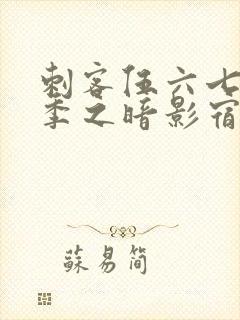 刺客伍六七
季之暗影宿
蘇易简